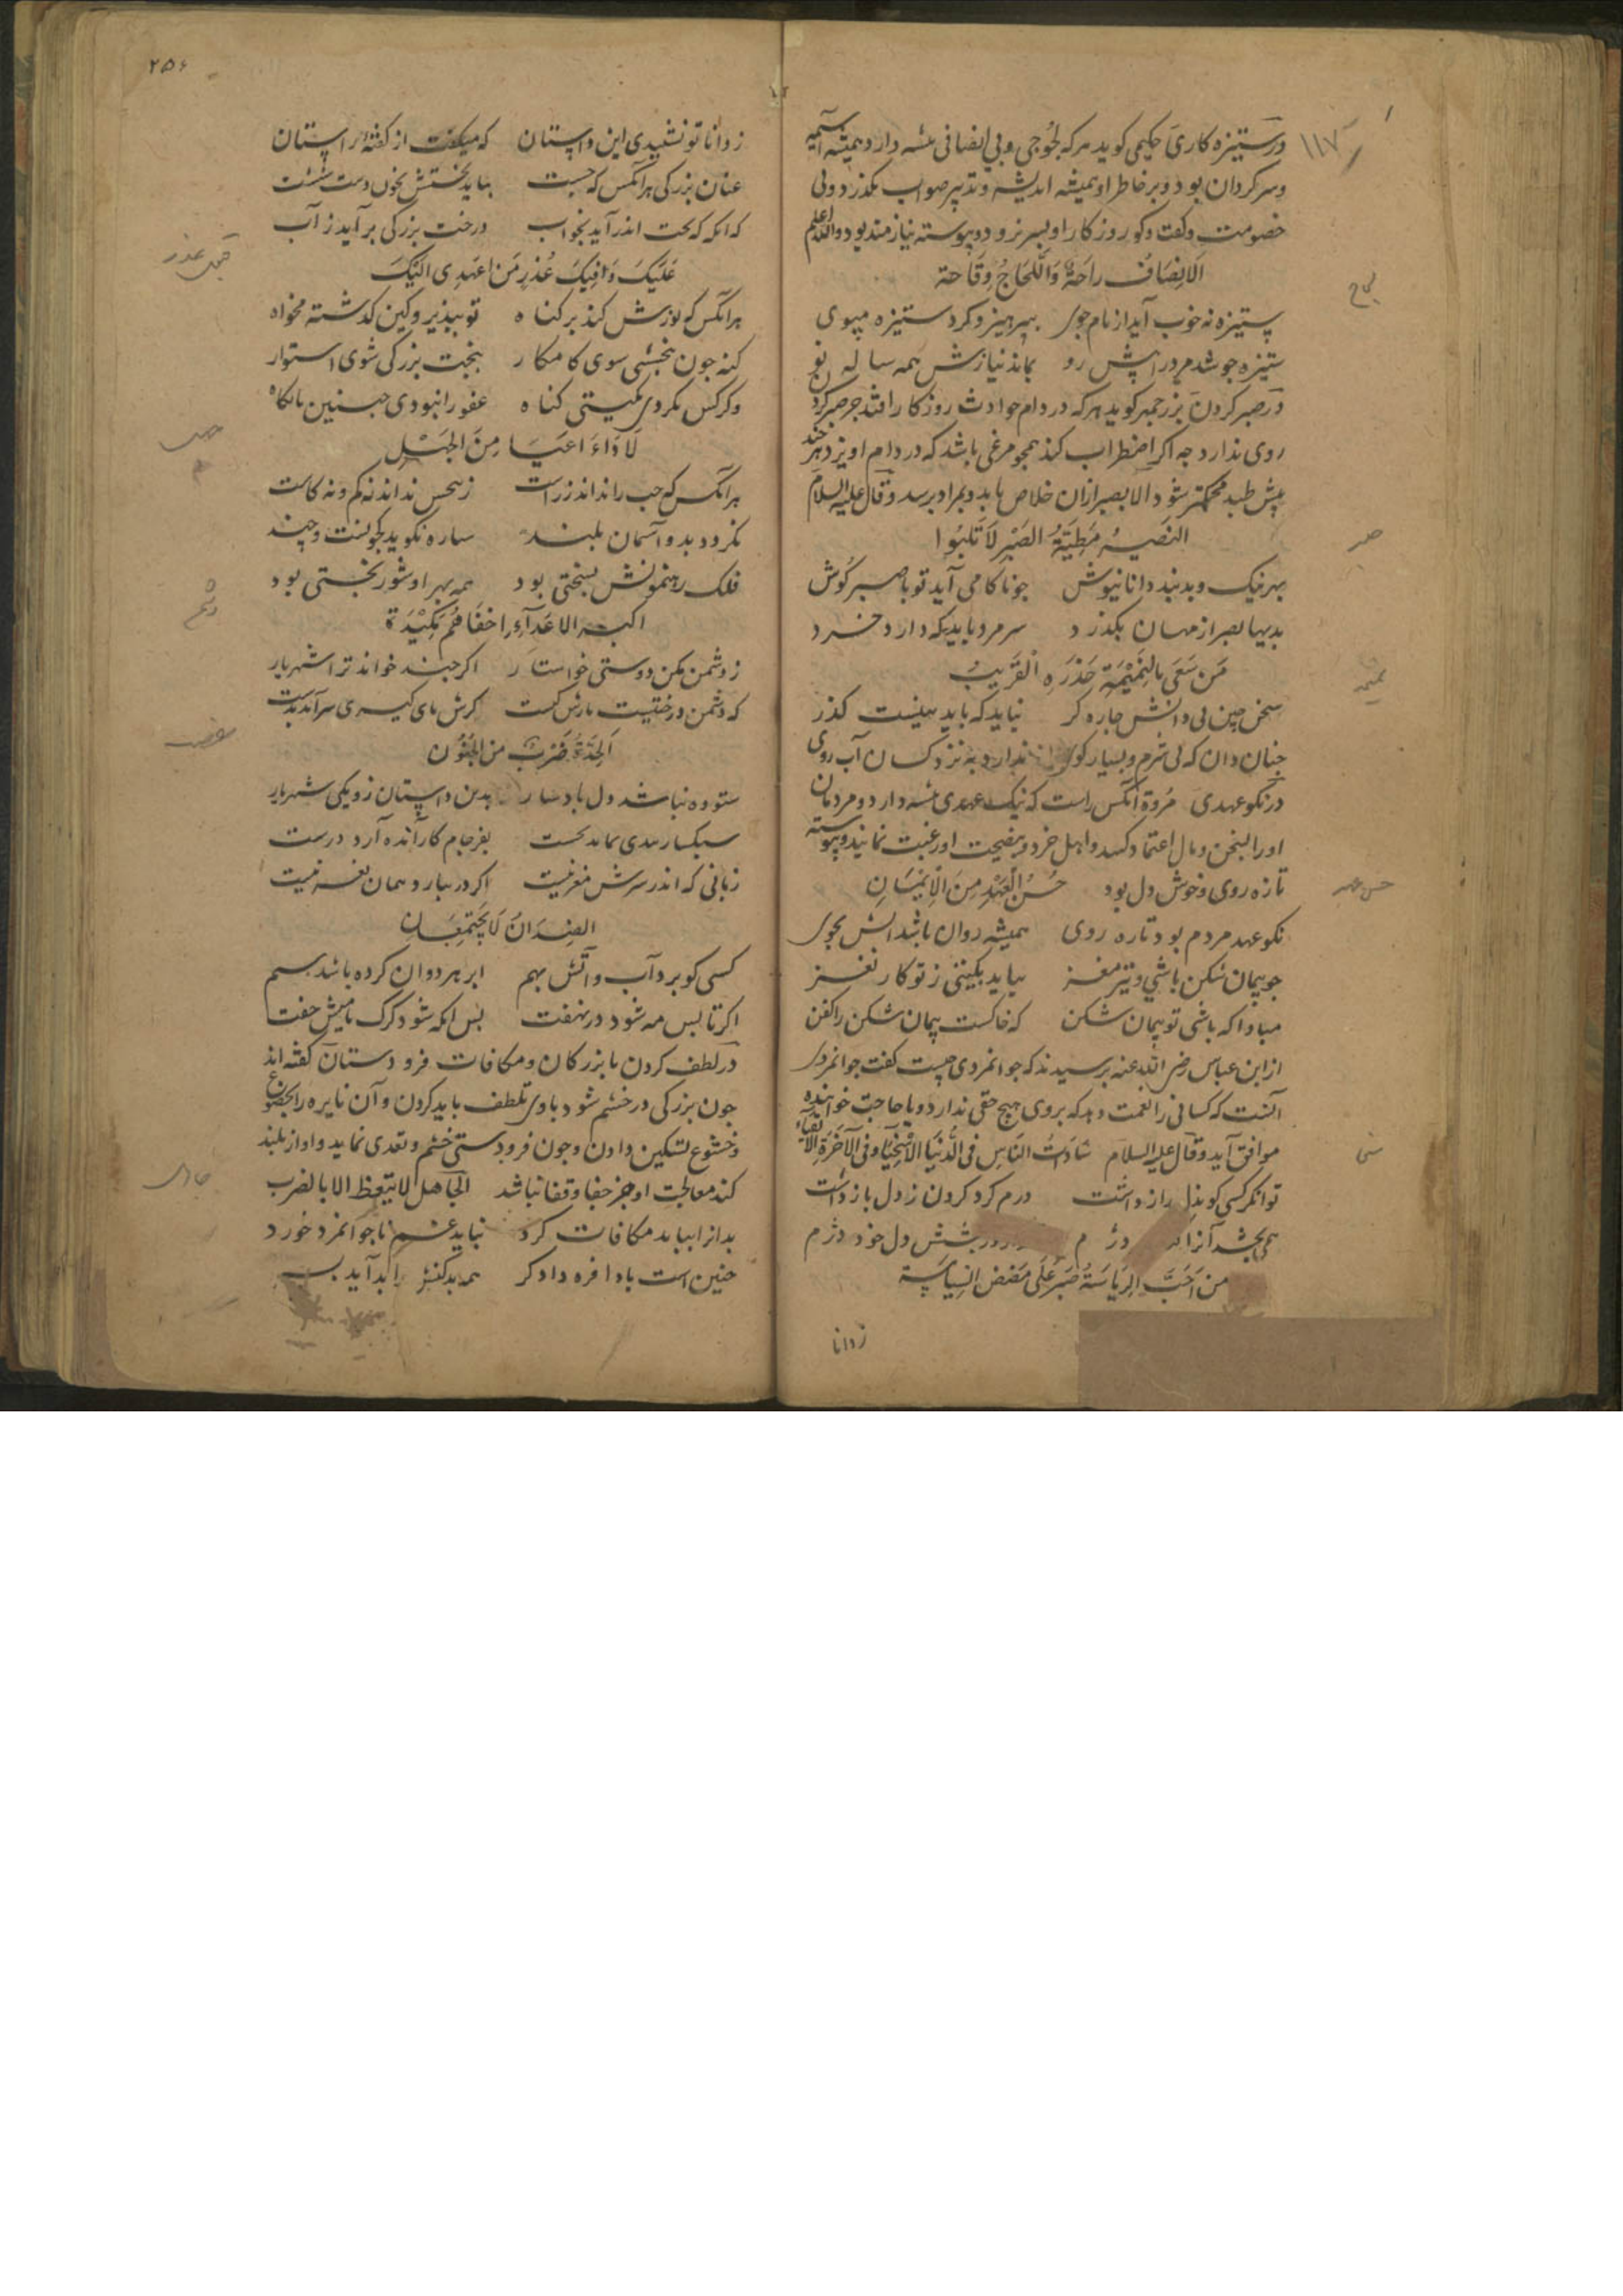 در ستیزه کاری حکیمی کوید هر که لجوجی و بی انصافی پیشه دارد همیشه
و سرکردان بود و بر خاطر او همیشه اندیشه و تدبیر صواب نکذرد و بی
خصومت و کفت و کو روزکار او بسر نرود و پیوسته نیازمند بود والله اعلم
۱۱۷
اَلاِنصَافُ رَاحَةٌ وَاللَّجَاجُ وَقَاحة
لجاج
ستیزه نه خوب آید از نام جوی بپرهیز و کرد ستیزه مپوی
ستیزه جو شد مرد را پیش رو بماند نیازش همه ساله نو
در صبر کردن بزرجمهر کوید هر که در دام حوادث روزکار افتد جز صبر کرد
روی ندارد چه اکر اضطراب کند همچو مرغی باشد که در دام اویزد هر چند
بیش طپد محکمتر شود الا بصبر ازان خلاص یابد و بمراد برسد وقال علیه السلام
مَطِیَّةُ الصَّبْر لاَ
صبر
بهر نیک و بد پند دانا نیوش چو ناکامی آید تو با صبر کوش
بدیها بصبر از مهان بکذرد سر مرد باید که دارد خرد
مَن سَعَی بالنَّمِیْمَةِ حَذَرَه الْقَرِیبُ
نمیمه
سخن چین بی دانش چاره کر نباید که یابد به پیشت کذر
چنان دان که بی شرم و بسیار کوی ندارد به نزد کسان آب روی
در نکو عهدی مُروّة آنکس راست که نیک عهدی پیشه دارد و مردمان
او را بسخن و مال اعتماد کنند و اهل خرد بنصیحت او رغبت نمایند و پیوسته
تازه روی و خوش دل بود حُسْنُ الْعَهْدِ مِنَ الْاِیْمَانِ
حسن عهد
نکو عهد مردم بود تازه روی همیشه روان باشد ابش بجوی
چو پیمان شکن باشی و تیز مغز نیاید بکیتی ز تو کار نغز
مبادا که باشی تو پیمان شکن که خاکست پیمان شکن را کفن
از ابن عباس رضی الله عنه پرسیدند که جوانمردی چیست کفت جوانمردی
آنست که کسانی را نعمت دهد که بروی هیچ حقی ندارد و یا حاجت خواهنده
موافق آید وقال علیه السلام سَادَاتُ النَّاسِ فی الدُّنیَا الاَسْخِیَاء وفی الآخَرَة الاَتقیاء
سخی
توانکر کسی کو بذل راز داشت درم کرد کردن ز دل باز داشت
همی بخشد آنرا که دژم دل خود دژم
مَن اَحَبَّ الرِیَاسَةُ صَبَرَ عَلَی مَضَضِ السِّیاسَة
زدانا
۲۵۶
ز دانا تو نشنیدی این داستان که میکفت از کفتهٔ راستان
عنان بزرکی هر آنکس که جست بباید نخستش بخون دست شست
که انکه که بخت اندر آید بخواب درخت بزرکی برآید ز آب
عَلَیکَ مَن اعتَذی الَیکَ
قبول عذر
هر آنکس که پوزش کند بر کناه تو بپذیر و کین کذشته مخواه
کنه چون ببخشی سوی کامکار بتخت بزرکی شوی استوار
و کر کس نکردی بکیتی کناه عفو را نبودی چنین پایکاه
لاَ دَاءَ اعیَا مِنَ الجَهْلِ
هر آنکس که چپ را نداند ز راست ز بخش نداند نه کم و نه کاست
نکرود بدو آسمان بلند ستاره نکوید بکونست و چند
فلک رهنمونش بسختی بود همه بهر او شور بختی بود
اکبر الاعدآءِ اخفَاهُم مَکِیْدَة
دشمن
ز دشمن مکن دوستی خواستار اکر چند خواند ترا شهریار
که دشمن درختیست بارش کبست کرش پای کیری سر آید بدست
اَلحِدَّةُ ضَربٌ مِن الجُنُون
غضب
ستوده نباشد دل باد سار بدین داستان زد یکی شهریار
سبکسار بفرجام کار آنده آرد درست
زبانی که اندر سرش مغز نیست اکر در ببارد همان نغز نیست
الضِدَانِ لَا یَجتَمِعَانِ
کسی کو برد آب و آتش بهم ابر هر دوان کرده باشد ستم
اکر تا بس مه شود در نهفت پس انکه شود کرک با میش جفت
در لطف کردن با بزرکان و مکافات فرو دستان کفته اند
چون بزرکی در خشم شود با وی تلطف باید کردن و آن نایره را بخضوع
و خشوع تسکین دادن و چون فرودستی خشم و تعدی نماید و اواز بلند
کند معالجت او جز جفا و قفا نباشد الجَاهل لا یتعظ الا بالضرب
جاهل
بدانرا بباید مکافات کرد نباید غم ناجوانمرد خورد
چنین است بادافره دادکر همه بد کنش را بد آید بسر